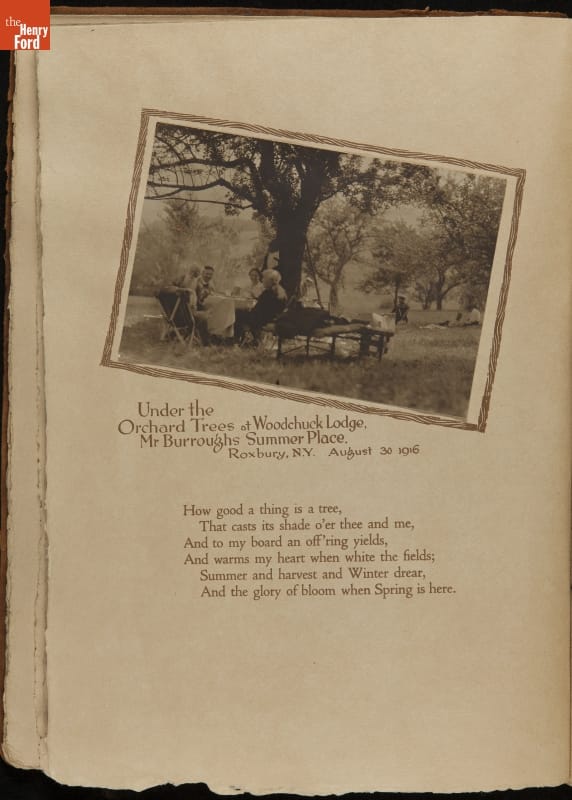 the
Henry
Ford
Under the
Orchard Trees at Woodchuck Lodge,
Mr Burroughs Summer Place.
Roxbury, N.Y. August 30 1916
How good a thing is a tree,
That casts its shade o'er thee and me,
And to my board an off'ring yields,
And warms my heart when white the fields;
Summer and harvest and Winter drear,
And the glory of bloom when Spring is here.